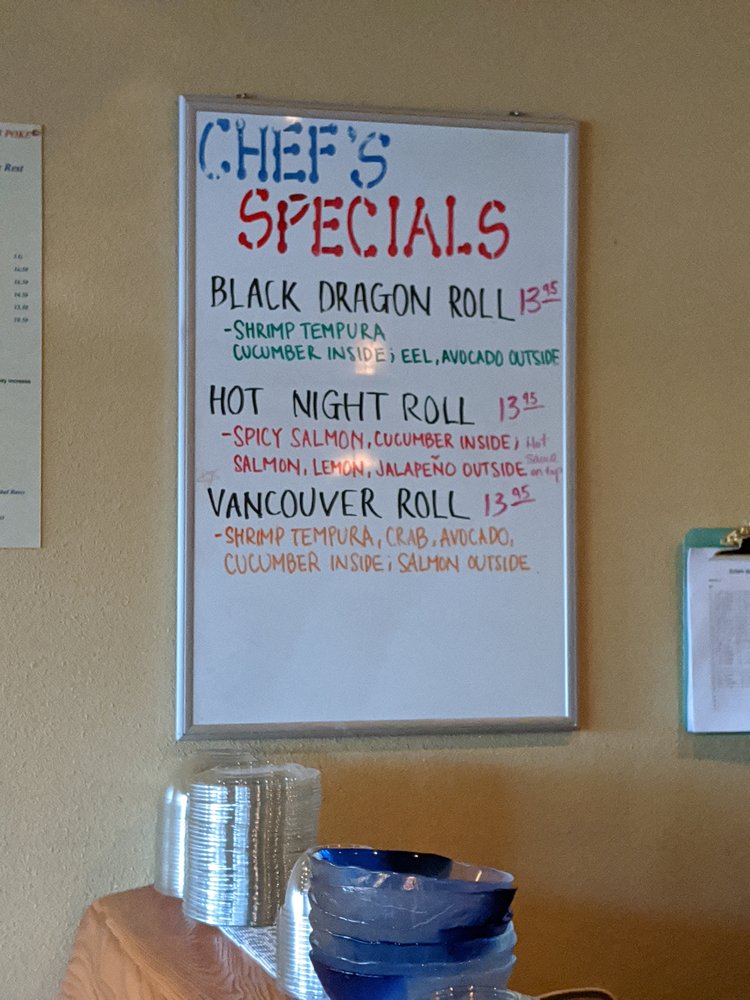 CHEF'S
SPECIALS
BLACK DRAGON ROLL 13.95
-SHRIMP TEMPURA
CUCUMBER INSIDE; EEL, AVOCADO OUTSIDE
HOT NIGHT ROLL 13.95
-SPICY SALMON, CUCUMBER INSIDE; Hot
SALMON, LEMON, JALAPEÑO OUTSIDE Sauce on top
VANCOUVER ROLL 13.95
-SHRIMP TEMPURA, CRAB, AVOCADO,
CUCUMBER INSIDE; SALMON OUTSIDE
POKE
Rest